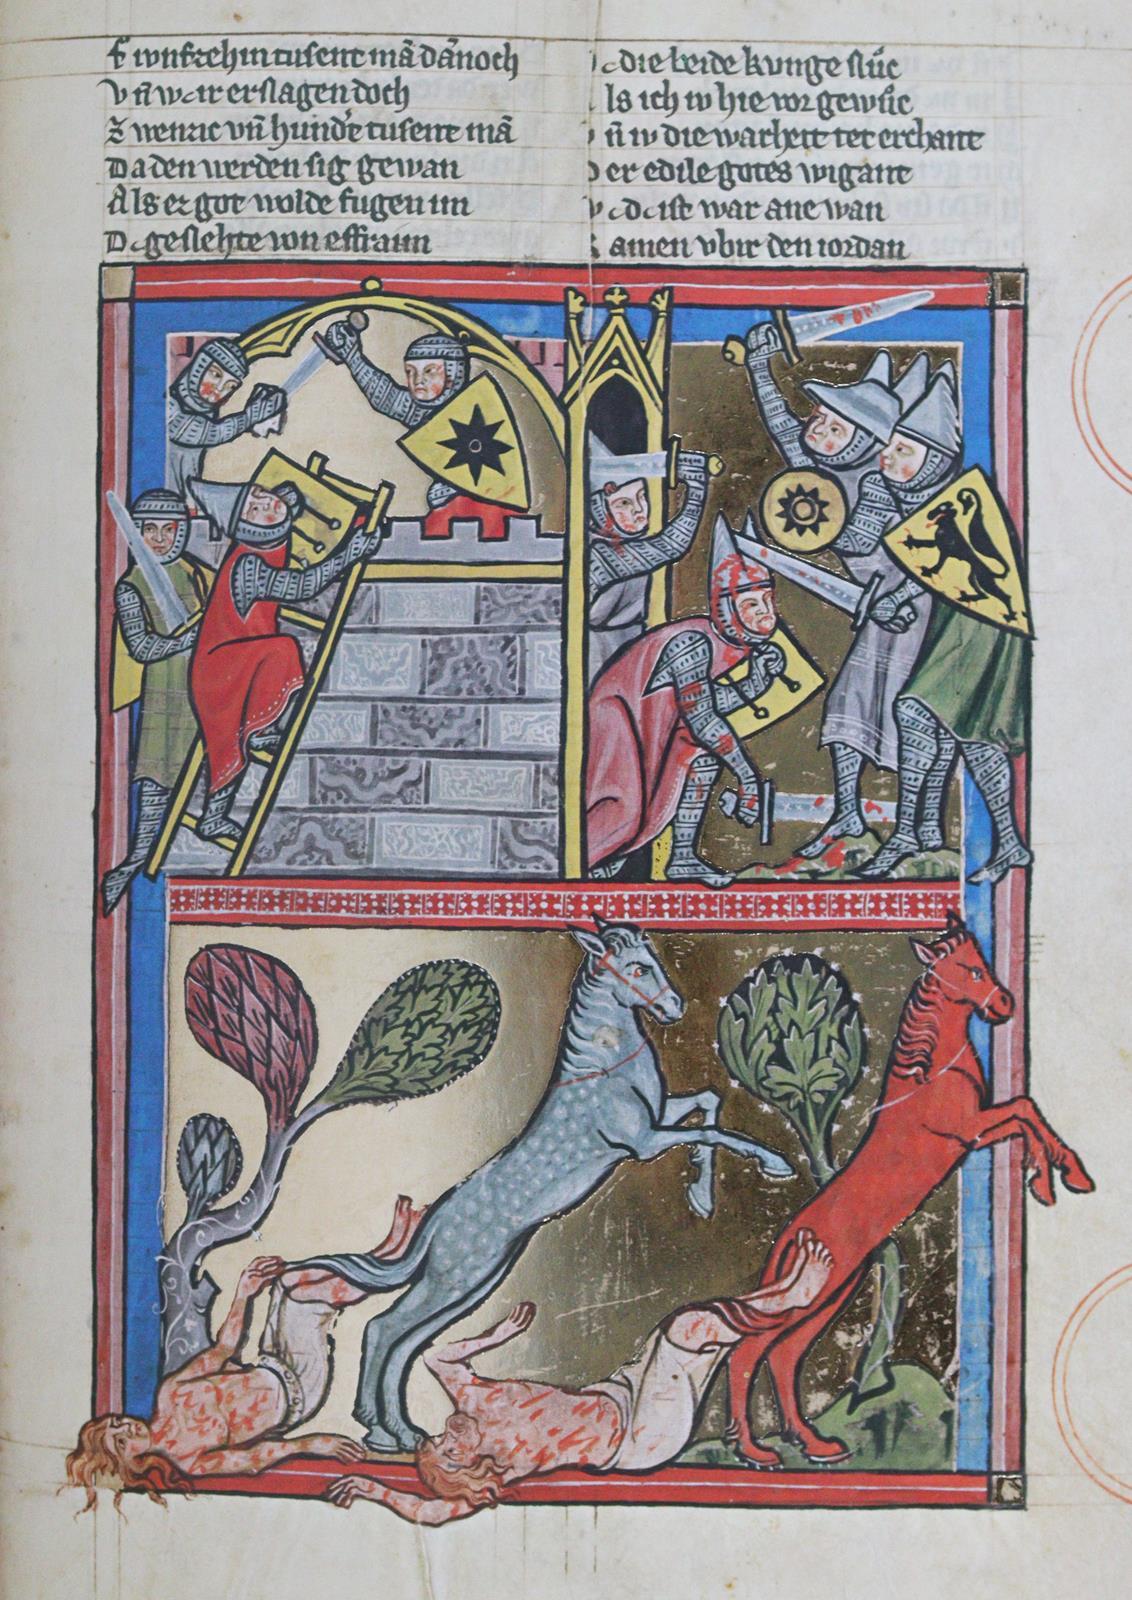 vunfzehin tusent mā dānoch
vñ wār erslagen doch
zwenzic vñ hund't tusent mā
Da den werden sig gewan
Als ez got wolde fugen im
Daz geslehte von effraim
die beide kunge slůc
Als ich iv hie vor gewůc
vñ iv die warheit tet erchant
Der edile gotes wigant
vñ daz ist war ane wan
amen vbir den iordan